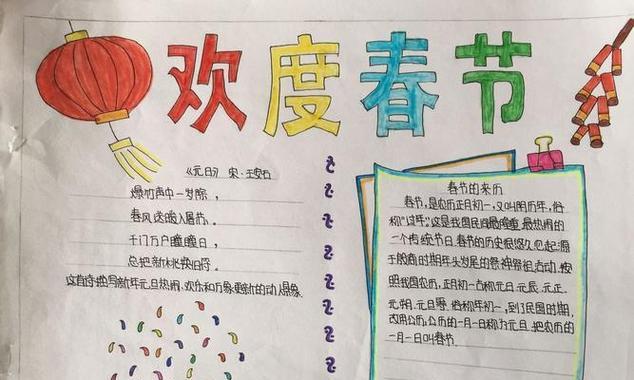 欢度春节
《元日》 宋·王安石
爆竹声中一岁除，
春风送暖入屠苏。
千门万户曈曈日，
总把新桃换旧符。
这首诗描写新年元旦热闹、欢乐和万象更新的动人景象
春节的来历
春节，是农历正月初一，又叫阴历年，俗
称“过年”。这是我国民间最隆重、最热闹的
一个传统节日。春节的历史很悠久，它起源
于殷商时期年头岁尾的祭神祭祖活动。按
照我国农历，正月初一古称元日、元辰、元正、
元朔、元旦等，俗称年初一，到了民国时期，
改用公历，公历的一月一日称为元旦，把农历的
一月一日叫春节。